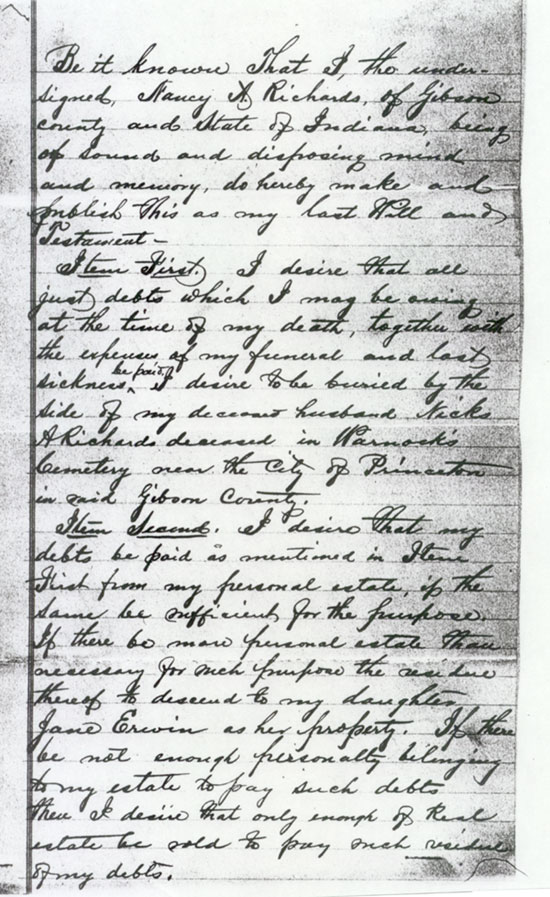 Be it known That I, the under-
signed, Nancy A Richards, of Gibson
county and State of Indiana, being
of sound and disposing mind
and memory, do hereby make and
publish this as my last Will and
Testament –
Item First. I desire that all
just debts which I may be owing
at the time of my death, together with
the expenses of my funeral and last
sickness, be paid. I desire to be buried by the
side of my deceased husband Nicks
A Richards deceased in Warnock's
Cemetery near the City of Princeton
in said Gibson County.
Item Second. I desire that my
debts be paid as mentioned in Item
First from my personal estate, if the
same be sufficient for the purpose.
If there be more personal estate than
necessary for such purpose the residue
thereof to descend to my daughter
Jane Erwin as her property. If there
be not enough personalty belonging
to my estate to pay such debts
then I desire that only enough of Real
estate be sold to pay such residue
of my debts.